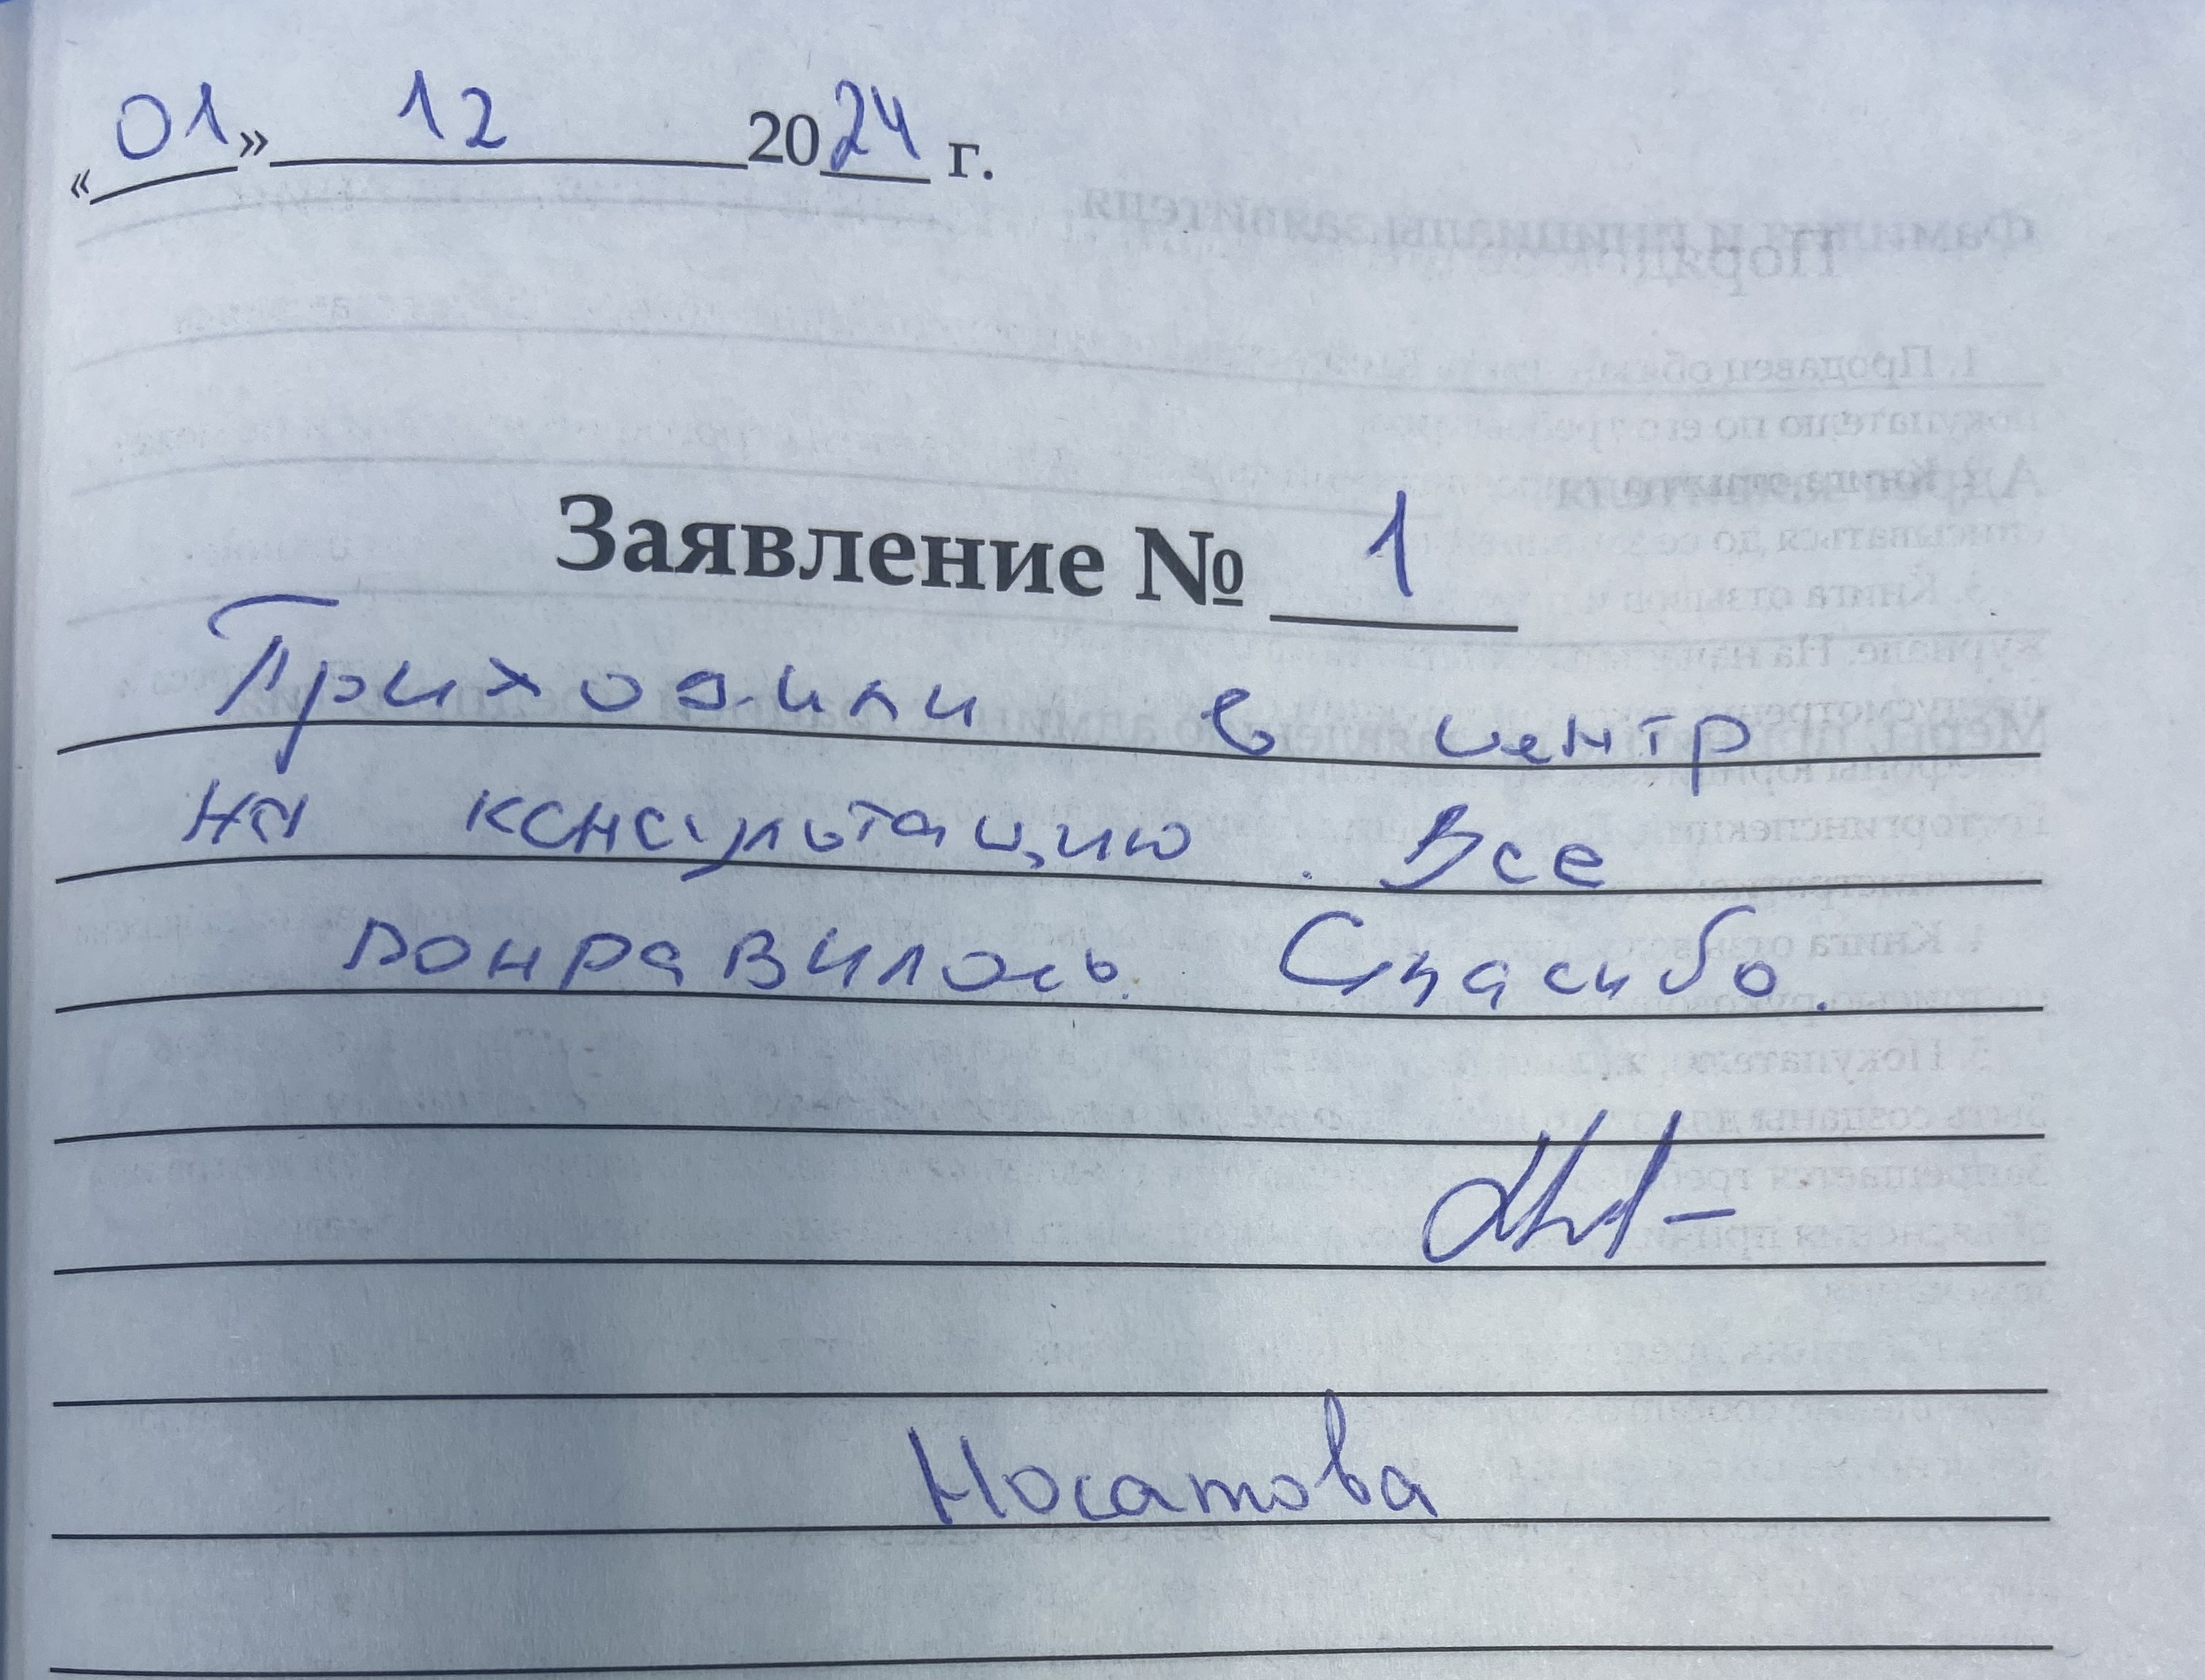 «01» 12 2024 г.
Заявление № 1
Приходили в центр
на консультацию. Все
понравилось. Спасибо.
Носатова